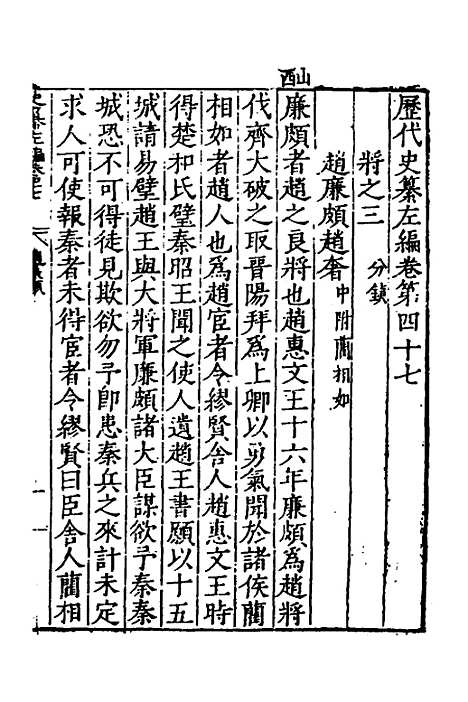 歷代史纂左編卷第四十七
將之三 分鎮
趙廉頗趙奢 中附藺相如
廉頗者趙之良將也趙惠文王十六年廉頗爲趙將
伐齊大破之取晋陽拜爲上卿以勇氣聞於諸侯藺
相如者趙人也爲趙宦者令繆賢舍人趙惠文王時
得楚和氏璧秦昭王聞之使人遺趙王書願以十五
城請易璧趙王與大將軍廉頗諸大臣謀欲予秦秦
城恐不可得徒見欺欲勿予卽患秦兵之來計未定
求人可使報秦者未得宦者令繆賢曰臣舍人藺相